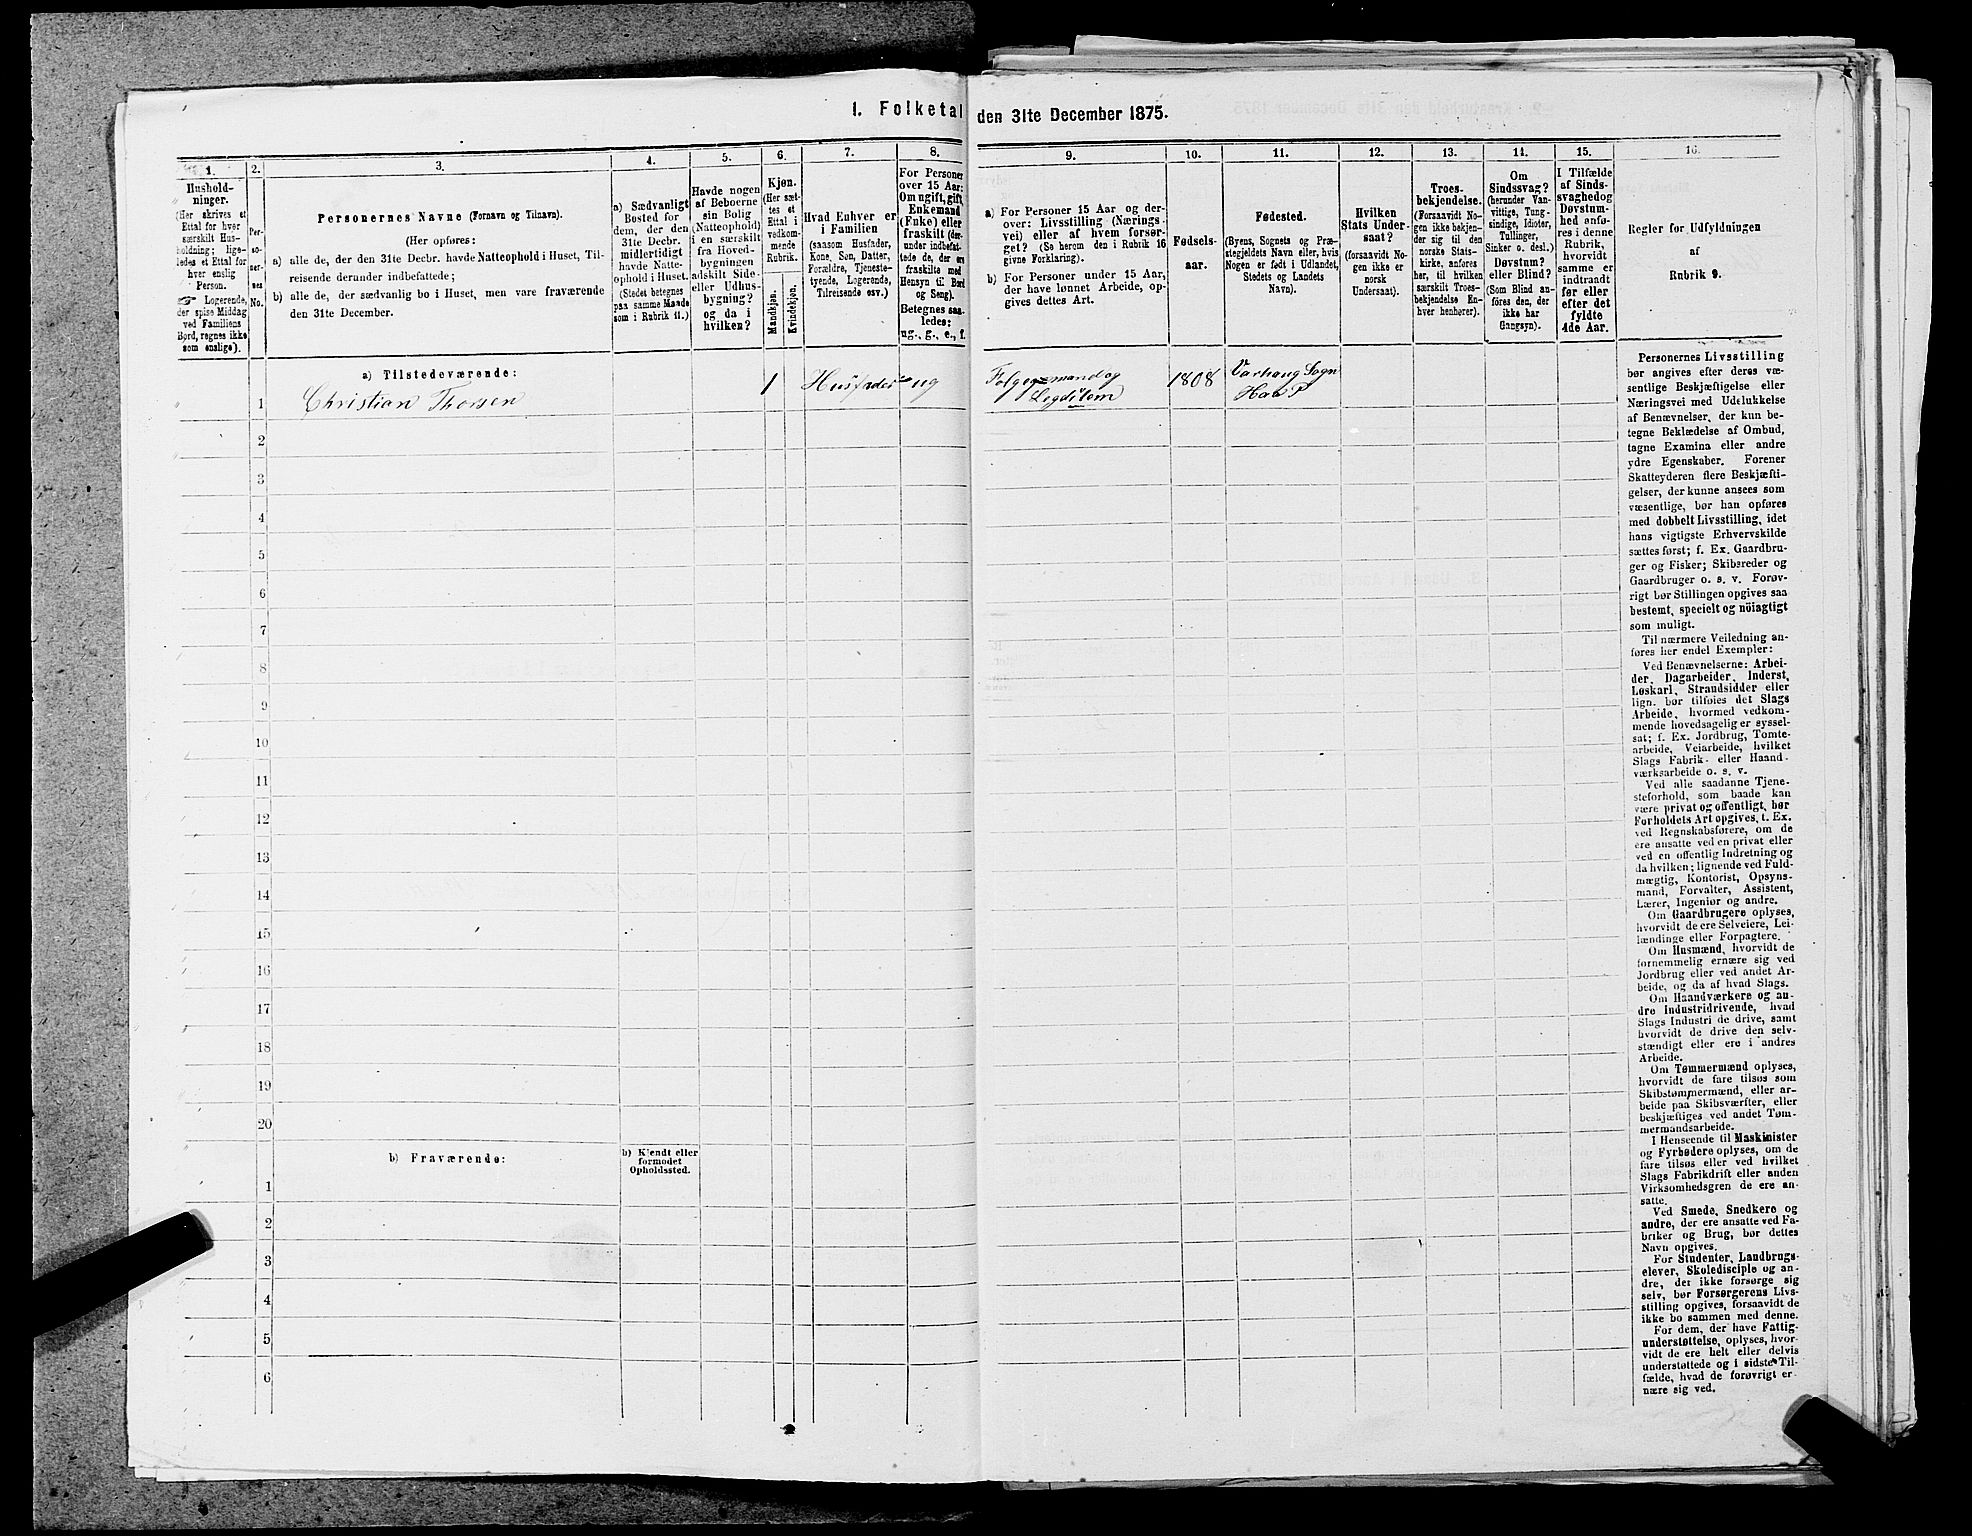 1. Folketal den 31te December 1875.
1.
2.
3.
4.
5.
6.
7.
8.
9.
10.
11.
12.
13.
14.
15.
16.
Hushold-
ninger.
(Her skrives et
Ettal for hver
særskilt Hus-
holdning; lige-
ledes et Ettal for
hver enslig
Person.
☞ Logerende,
der spise Middag
ved Familiens
Bord, regnes ikke
som enslige).
Per-
so-
ner-
nes
No.
Personernes Navne (Fornavn og Tilnavn).
(Her opføres:
a) alle de, der den 31te Decbr. havde Natteophold i Huset, Til-
reisende derunder indbefattede;
b) alle de, der sædvanlig bo i Huset, men vare fraværende
den 31te December.
a) Sædvanligt
Bosted for
dem, der den
31te Decbr.
midlertidigt
havde Natte-
ophold i Huset.
(Stedet betegnes
paa samme Maade
som i Rubrik 11.)
Havde nogen
af Beboerne
sin Bolig
(Natteophold)
i en særskilt
fra Hoved-
bygningen
adskilt Side-
eller Udhus-
bygning?
og da i
hvilken?
Kjøn.
(Her sæt-
tes et
Ettal i
vedkom-
mende
Rubrik.
Mandkjøn.
Kvindekjøn.
Hvad Enhver er
i Familien
(saasom Husfader,
Kone, Søn, Datter,
Forældre, Tjeneste-
tyende, Logerende,
Tilreisende osv.)
For Personer
over 15 Aar:
Om ugift, gift,
Enkemand
(Enke) eller
fraskilt (der-
under indbefat-
tede de, der ere
fraskilte med
Hensyn til Bord
og Seng).
Betegnes saa-
ledes:
ug., g., e., f.
a) For Personer 15 Aar og der-
over: Livsstilling (Nærings-
vei) eller af hvem forsør-
get? (Se herom den i Rubrik 16
givne Forklaring).
b) For Personer under 15 Aar,
der have lønnet Arbeide, op-
gives dettes Art.
Fødsels-
aar.
Fødested.
(Byens, Sognets og Præ-
stegjeldets Navn eller, hvis
Nogen er født i Udlandet,
Stedets og Landets
Navn).
Hvilken
Stats Under-
saat?
(forsaavidt No-
gen ikke er
norsk
Undersaat).
Troes-
bekjendelse.
(Forsaavidt No-
gen ikke bekjen-
der sig til den
norske Stats-
kirke, anføres
her, til hvilken
særskilt Troes-
bekjendelse En-
hver henhører).
Om
Sindssvag?
(herunder Van-
vittige, Tung-
sindige, Idioter,
Tullinger,
Sinker o. desl.)
Døvstum?
eller Blind?
(Som Blind an-
føres den, der
ikke har
Gangsyn).
I Tilfælde
af Sinds-
svaghed og
Døvstum-
hed anfø-
res i denne
Rubrik,
hvorvidt
samme er
indtraadt
før eller
efter det
fyldte
4de Aar.
Regler for Udfyldningen
af
Rubrik 9.
a) Tilstedeværende:
1 Christian Thorsen 1 Husfader ug Følgemand og 1808 Varhaug Sogn
Lægdslem Haa P
2
3
4
5
6
7
8
9
10
11
12
13
14
15
16
17
18
19
20
b) Fraværende:
b) Kjendt eller
formodet
Opholdssted.
1
2
3
4
5
6
Personernes Livsstilling
bør angives efter deres væ-
sentlige Beskjæftigelse eller
Næringsvei med Udelukkelse
af Benævnelser, der kun be-
tegne Beklædelse af Ombud,
tagne Examina eller andre
ydre Egenskaber. Forener
Skatteyderen flere Beskjæfti-
gelser, der kunne ansees som
væsentlige, bør han opføres
med dobbelt Livsstilling, idet
hans vigtigste Erhvervskilde
sættes først; f. Ex. Gaardbru-
ger og Fisker; Skibsreder og
Gaardbruger o. s. v. Forøv-
rigt bør Stillingen opgives saa
bestemt, specielt og nøiagtigt
som muligt.
Til nærmere Veiledning an-
føres her endel Exempler:
Ved Benævnelserne: Arbei-
der, Dagarbeider, Inderst,
Løskarl, Strandsidder eller
lign. bør tilføies det Slags
Arbeide, hvormed vedkom-
mende hovedsagelig er syssel-
sat; f. Ex. Jordbrug, Tomte-
arbeide, Veiarbeide, hvilket
Slags Fabrik- eller Haand-
værksarbeide o. s. v.
Ved alle saadanne Tjene-
steforhold, som baade kan
være privat og offentligt, bør
Forholdets Art opgives, t. Ex.
ved Regnskabsførere, om de
ere ansatte ved en privat eller
ved en offentlig Indretning og
da hvilken; lignende ved Fuld-
mægtig, Kontorist, Opsyns-
mand, Forvalter, Assistent,
Lærer, Ingeniør og andre.
Om Gaardbrugere oplyses,
hvorvidt de ere Selveiere, Lei-
lændinge eller Forpagtere.
Om Husmænd, hvorvidt de
fornemmelig ernære sig ved
Jordbrug eller ved andet Ar-
beide, og da af hvad Slags.
Om Haandværkere og an-
dre Industridrivende, hvad
Slags Industri de drive, samt
hvorvidt de drive den selv-
stændigt eller ere i andres
Arbeide.
Om Tømmermænd oplyses,
hvorvidt de fare tilsøs som
Skibstømmermænd, eller ar-
beide paa Skibsværfter, eller
beskjæftiges ved andet Tøm-
mermandsarbeide.
I Henseende til Maskinister
og Fyrbødere oplyses, om de
fare tilsøs eller ved hvilket
Slags Fabrikdrift eller anden
Virksomhedsgren de ere an-
satte.
Ved Smede, Snedkere og
andre, der ere ansatte ved Fa-
briker og Brug, bør dettes
Navn opgives.
For Studenter, Landbrugs-
elever, Skoledisciple og an-
dre, der ikke forsørge sig
selv, bør Forsørgerens Livs-
stilling opgives, forsaavidt de
ikke bo sammen med denne.
For dem, der have Fattig-
understøttelse, oplyses, hvor-
vidt de ere helt eller delvis
understøttede og i sidste Til-
fælde, hvad de forøvrigt er-
nære sig ved.